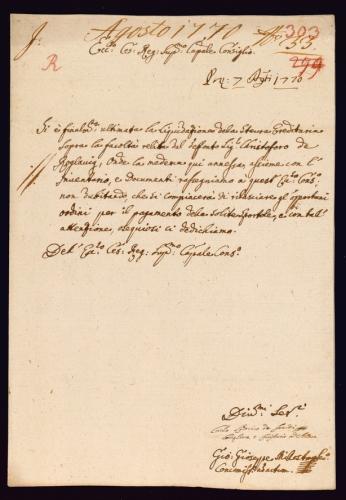 Agosto 1770 No. 33.
303
299
R
Ecc.so Ces: Reg: Sup.mo Cap.ale Consiglio.
Prq: 7 Ag.to 1770
Si è finalm.te ultimata la liquidazione della Steura Ereditaria
sopra la facoltà relita del defonto Sig.r Cristoforo de
Onde la medema qui annessa, assieme con l'
Inventario, e documenti rassegniamo a quest' Ecc.so Cons.o
non dubitando, che si compiacerà di rilasciare gl' opportuni
ordini per il pagamento della solite Sportole, e con tal
attenzione, ossequiosi ci dedichiamo.
Dell' Ecc.so Ces: Reg: Sup.mo Cap.ale Cons.o
Div.mi Ser.i
Gio: Giuseppe